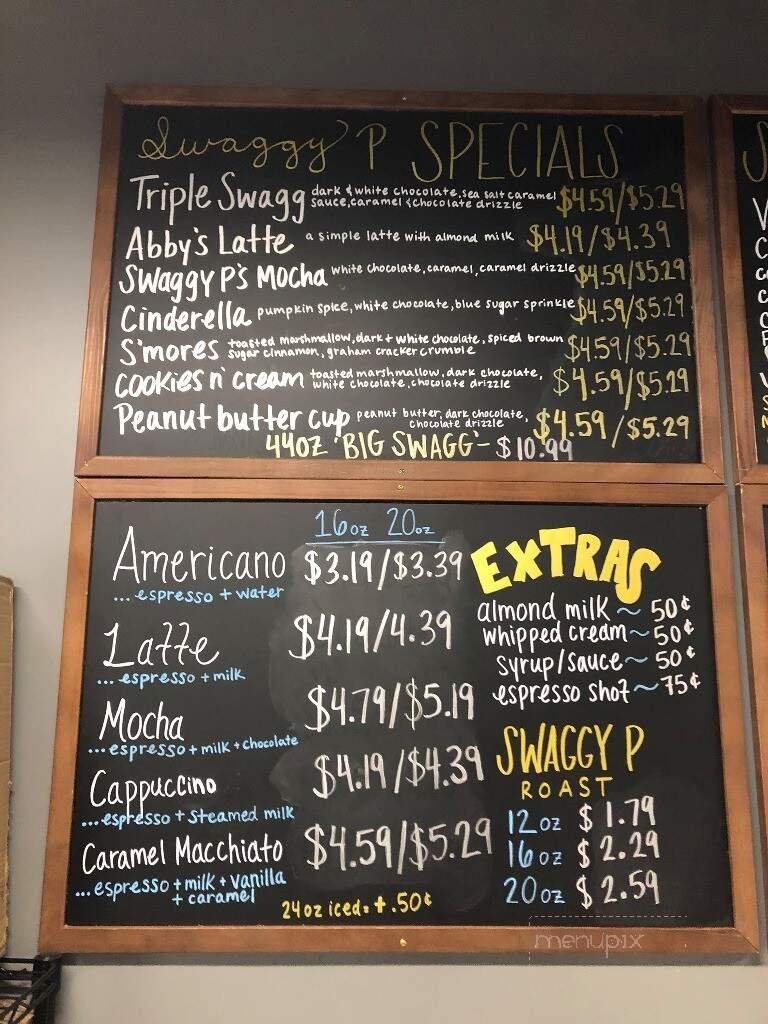 Swaggy P SPECIALS
Triple Swagg dark & white chocolate, sea salt caramel sauce, caramel & chocolate drizzle $4.59/$5.29
Abby's Latte a simple latte with almond milk $4.19/$4.39
Swaggy P's Mocha white chocolate, caramel, caramel drizzle $4.59/$5.29
Cinderella pumpkin spice, white chocolate, blue sugar sprinkle $4.59/$5.29
S'mores toasted marshmallow, dark + white chocolate, spiced brown sugar cinnamon, graham cracker crumble $4.59/$5.29
Cookies n' cream toasted marshmallow, dark chocolate, white chocolate, chocolate drizzle $4.59/$5.29
Peanut butter cup peanut butter, dark chocolate, chocolate drizzle $4.59/$5.29
44oz "BIG SWAGG" - $10.99
16oz 20oz
Americano $3.19/$3.39
... espresso + water
Latte $4.19/4.39
... espresso + milk
Mocha $4.79/$5.19
... espresso + milk + chocolate
Cappuccino $4.19/$4.39
... espresso + steamed milk
Caramel Macchiato $4.59/$5.29
... espresso + milk + vanilla
+ caramel
24oz iced = + .50¢
EXTRAS
almond milk ~ 50¢
whipped cream ~ 50¢
syrup/sauce ~ 50¢
espresso shot ~ 75¢
SWAGGY P
ROAST
12oz $1.79
16oz $2.29
20oz $2.59
menupix